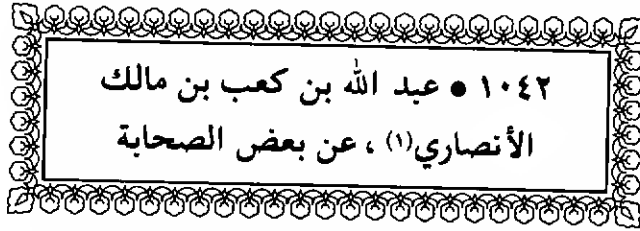 ١٠٤٢ • عبد الله بن كعب بن مالك
الأنصاري(١) ، عن بعض الصحابة